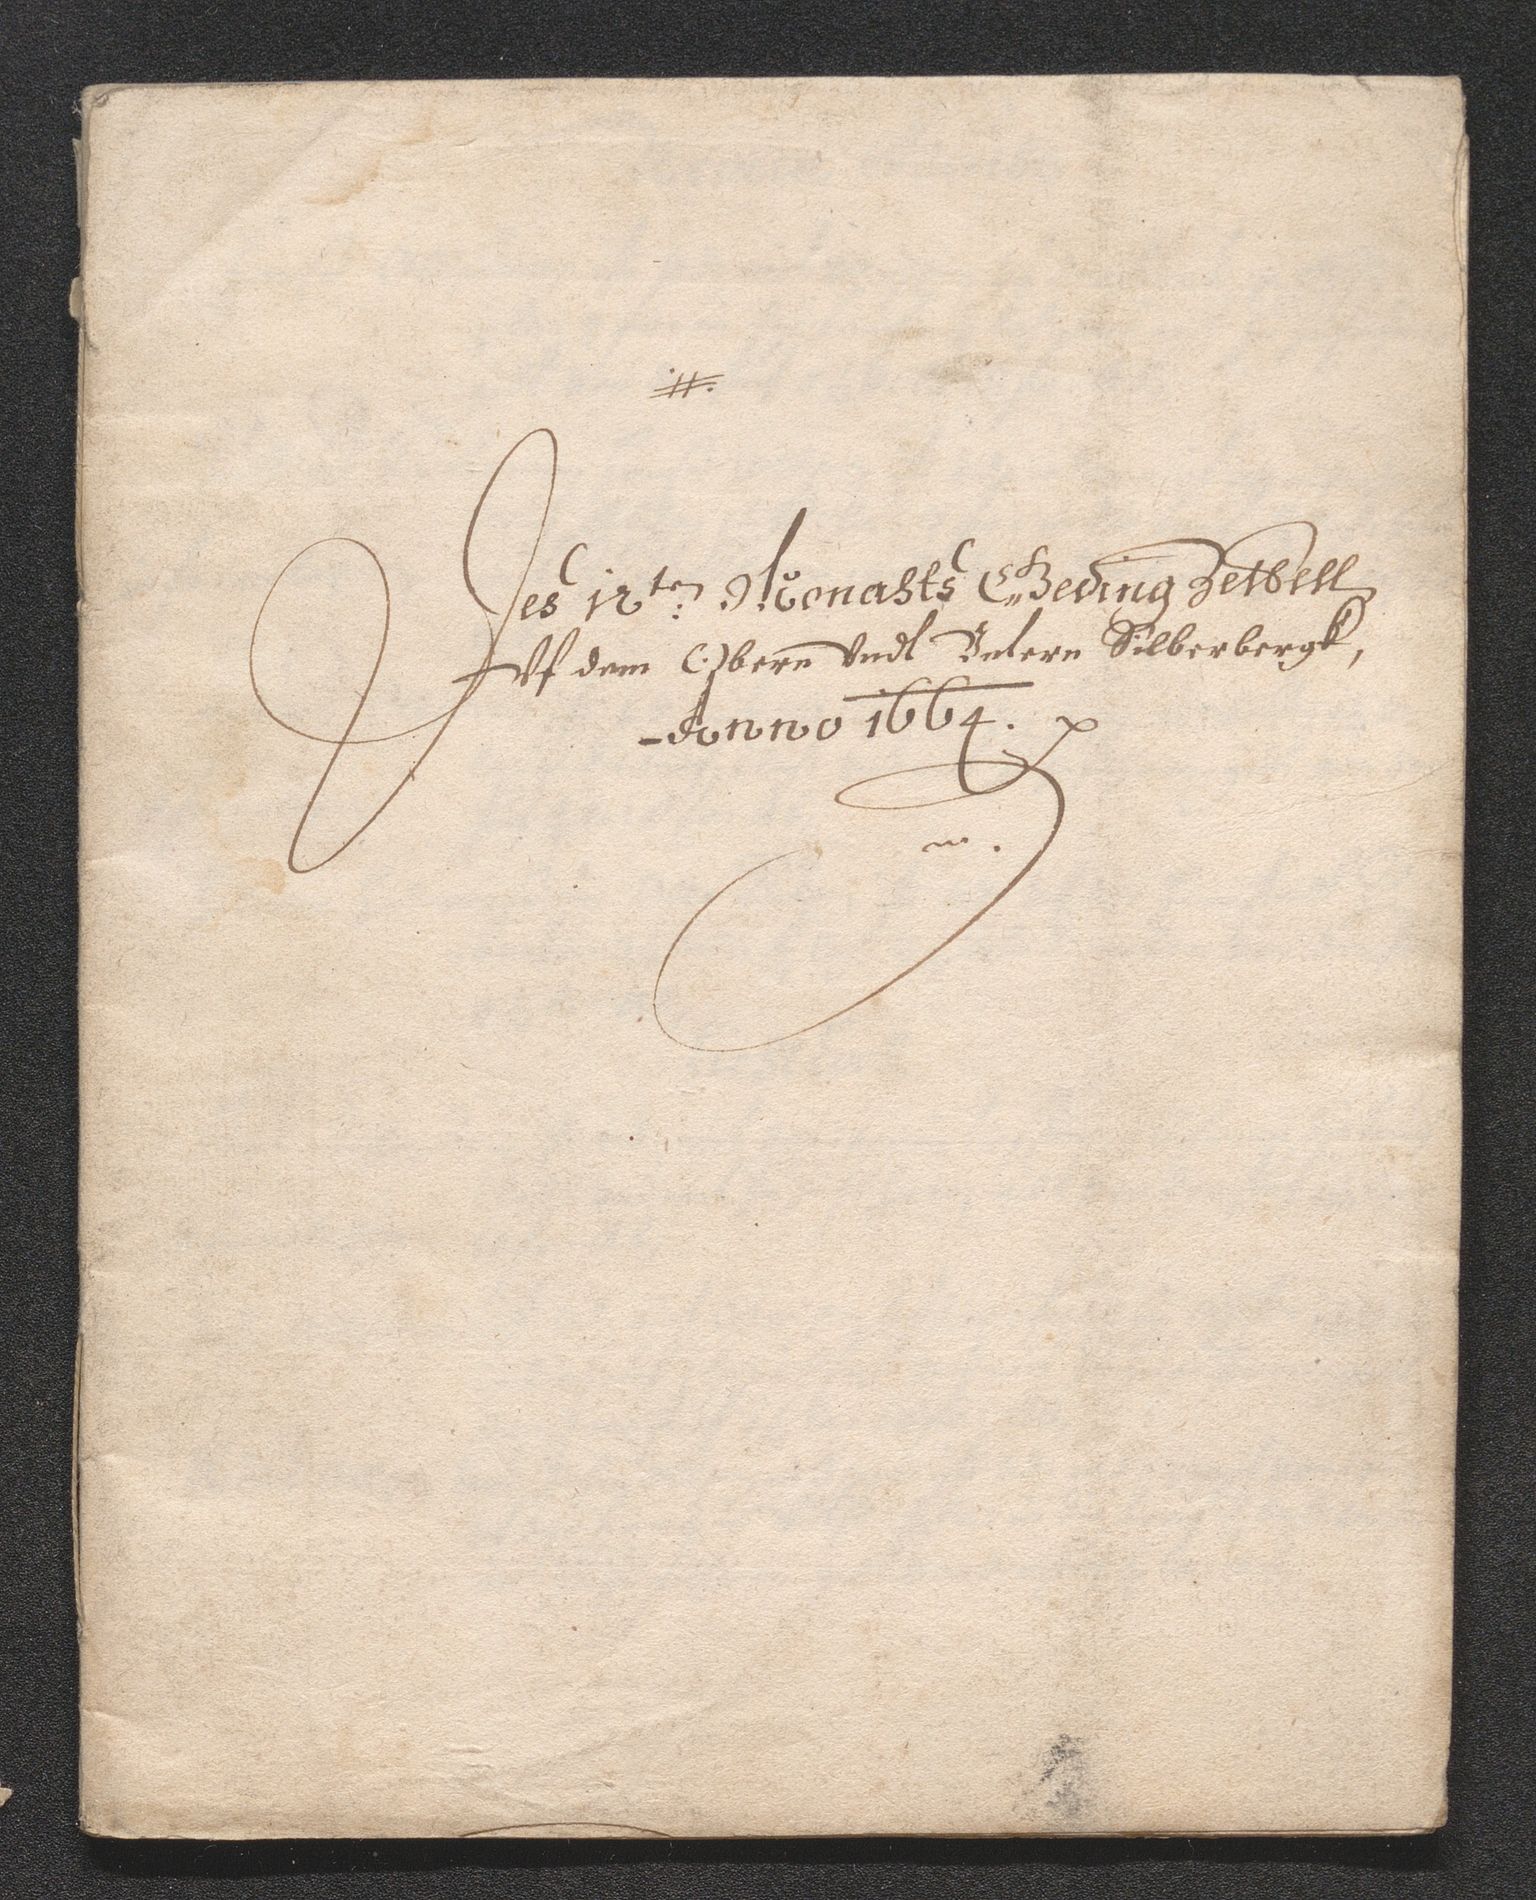 Des 12ten: Monahts Geding Zettell
Vf dem Obern Vndt Vntern Silberbergk,
Anno 1664.